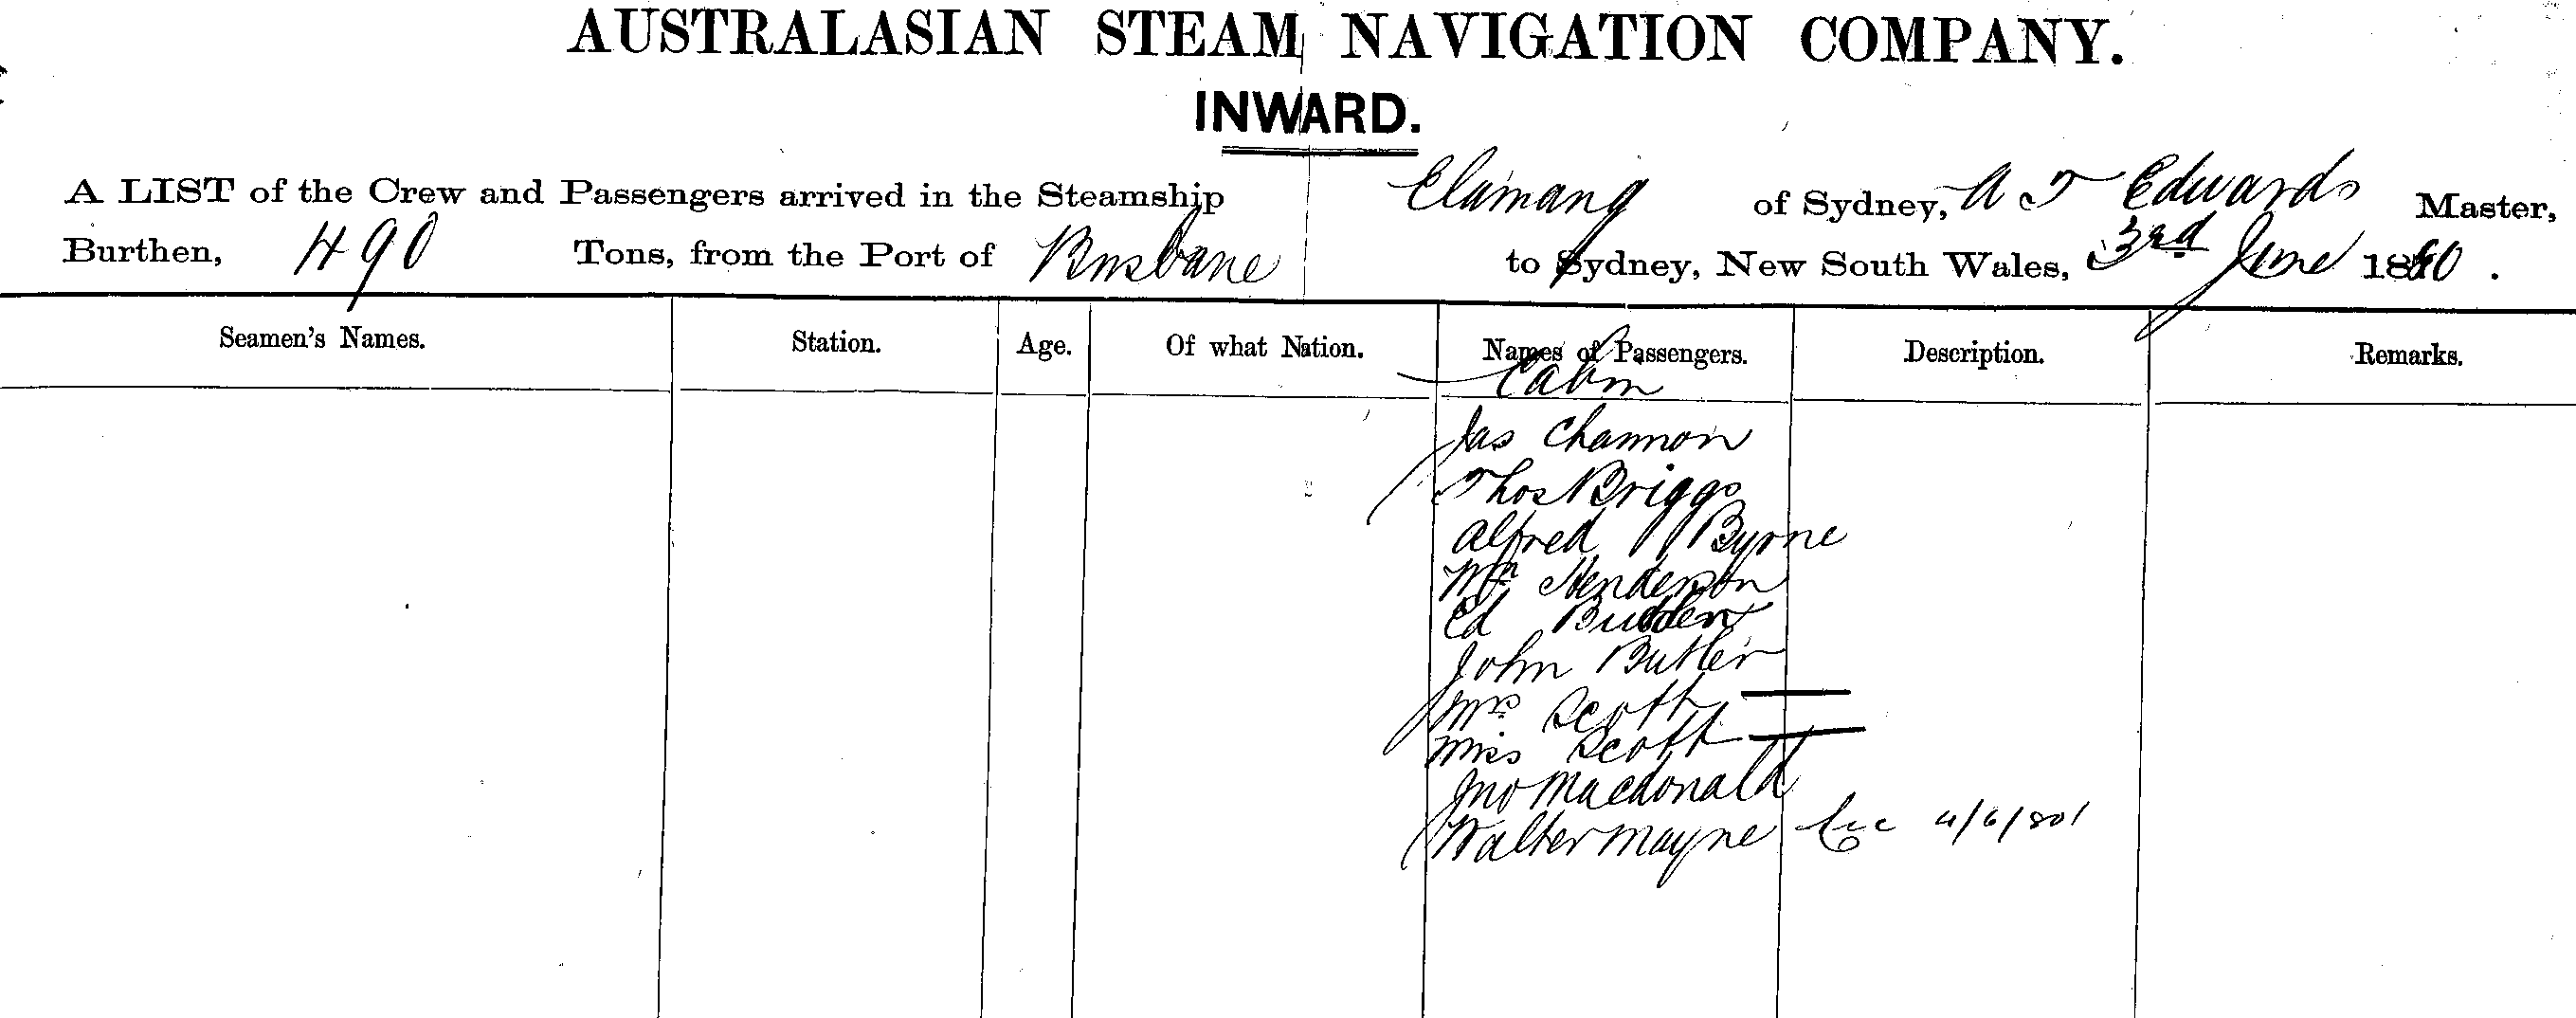 AUSTRALASIAN STEAM NAVIGATION COMPANY.
INWARD.
A LIST of the Crew and Passengers arrived in the Steamship Elamang of Sydney, A T Edwards Master,
Burthen, 490 Tons, from the Port of Brisbane to Sydney, New South Wales, 3rd June 1880.
Seamen's Names. Station. Age. Of what Nation. Names of Passengers. Description. Remarks.
Cabin
Jas Channon
Thos Briggs
Alfred Byrne
Mr Henderson
Ed Budden
John Butler
Mrs Scott
Miss Scott
Jno Macdonald
Walter Mayne